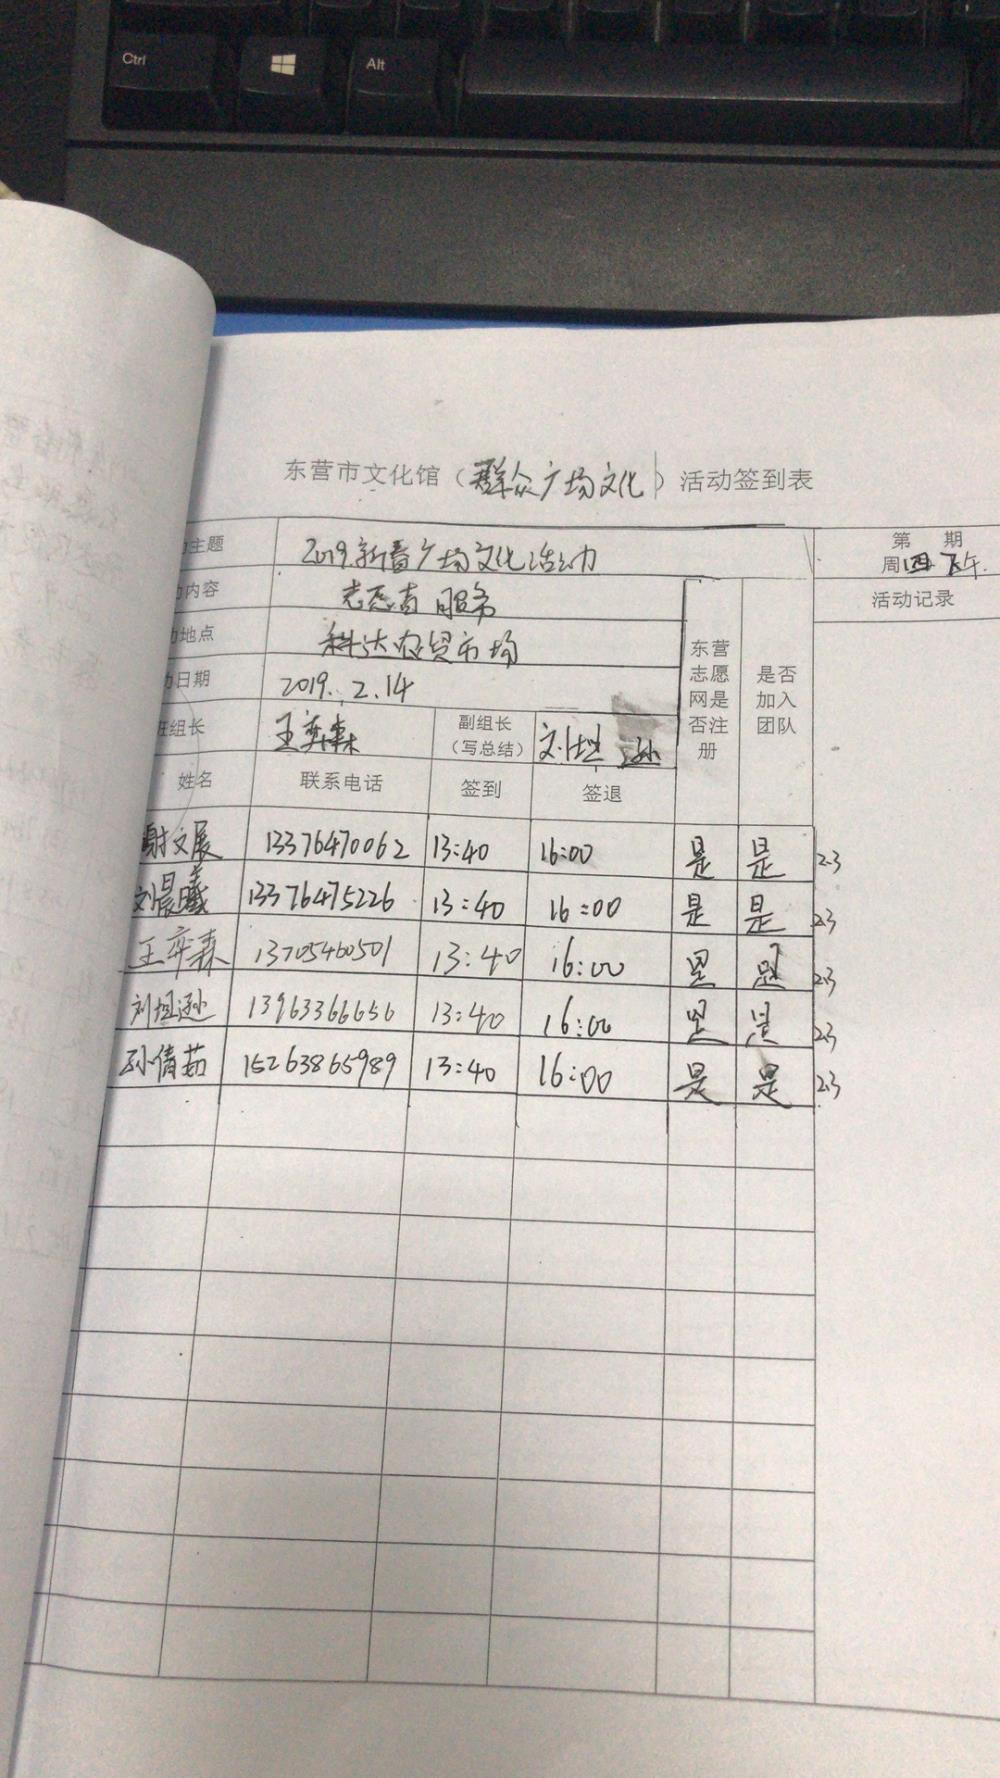 Ctrl Alt
东营市文化馆（群众广场文化）活动签到表
主题 2019新春广场文化活动 第 期
周四下午
内容 志愿者服务 活动记录
地点 科达农贸市场
日期 2019.2.14
组长 王奕森 副组长（写总结） 刘坦逊
东营志愿网是否注册 是否加入团队
姓名 联系电话 签到 签退
谢文展 13376470062 13:40 16:00 是 是 2.3
刘晨曦 13376475226 13:40 16:00 是 是 2.3
王奕森 13705460501 13:40 16:00 是 是 2.3
刘坦逊 13963366656 13:40 16:00 是 是 2.3
孙倩茹 15263865989 13:40 16:00 是 是 2.3